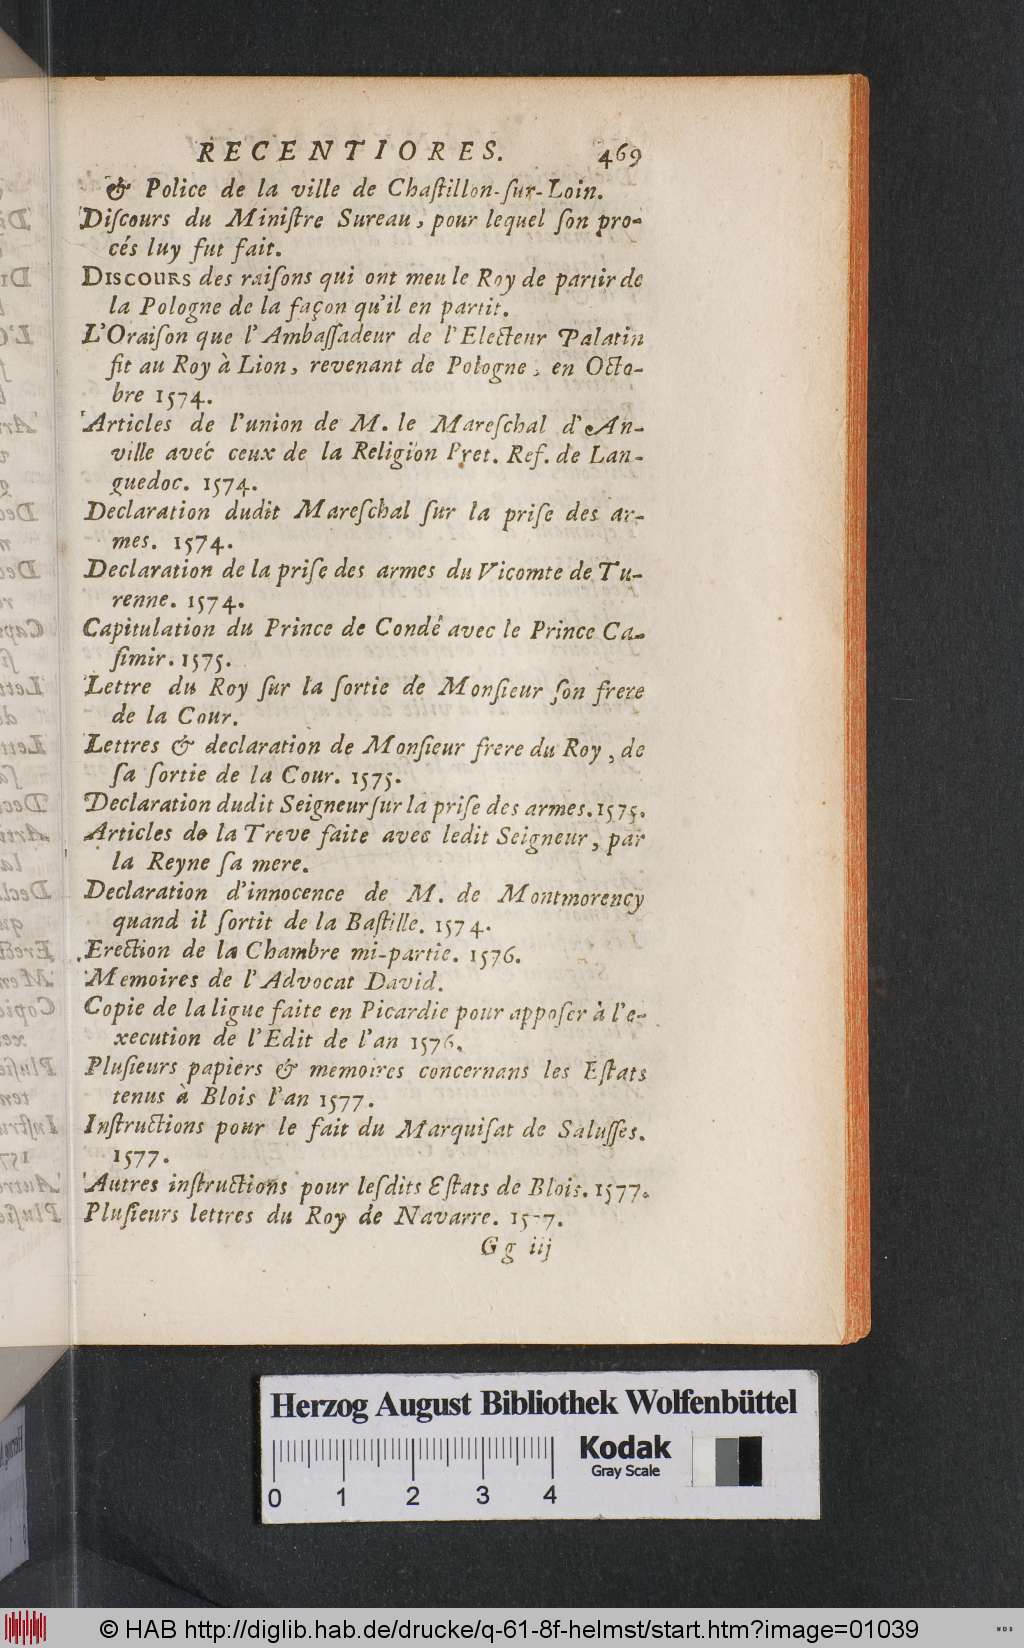 RECENTIORES. 469
& Police de la ville de Chaſtillon-ſur-Loin.
Diſcours du Miniſtre Sureau, pour lequel ſon pro-
cés luy fut fait.
DISCOURS des raiſons qui ont meu le Roy de partir de
la Pologne de la façon qu'il en partit.
L'Oraiſon que l'Ambaſſadeur de l'Electeur Palatin
fit au Roy à Lion, revenant de Pologne, en Octo-
bre 1574.
Articles de l'union de M. le Mareſchal d'An-
ville avec ceux de la Religion Pret. Ref. de Lan-
guedoc. 1574.
Declaration dudit Mareſchal ſur la priſe des ar-
mes. 1574.
Declaration de la priſe des armes du Vicomte de Tu-
renne. 1574.
Capitulation du Prince de Condé avec le Prince Ca-
ſimir. 1575.
Lettre du Roy ſur la ſortie de Monſieur ſon frere
de la Cour.
Lettres & declaration de Monſieur frere du Roy, de
ſa ſortie de la Cour. 1575.
Declaration dudit Seigneur ſur la priſe des armes. 1575.
Articles de la Treve faite avec ledit Seigneur, par
la Reyne ſa mere.
Declaration d'innocence de M. de Montmorency
quand il ſortit de la Baſtille. 1574.
Erection de la Chambre mi-partie. 1576.
Memoires de l'Advocat David.
Copie de la ligue faite en Picardie pour appoſer à l'e-
xecution de l'Edit de l'an 1576.
Pluſieurs papiers & memoires concernans les Eſtats
tenus à Blois l'an 1577.
Inſtructions pour le fait du Marquiſat de Saluſſes.
1577.
Autres inſtructions pour leſdits Eſtats de Blois. 1577.
Pluſieurs lettres du Roy de Navarre. 1577.
Gg iij
Herzog August Bibliothek Wolfenbüttel
Kodak
Gray Scale
0 1 2 3 4
© HAB http://diglib.hab.de/drucke/q-61-8f-helmst/start.htm?image=01039